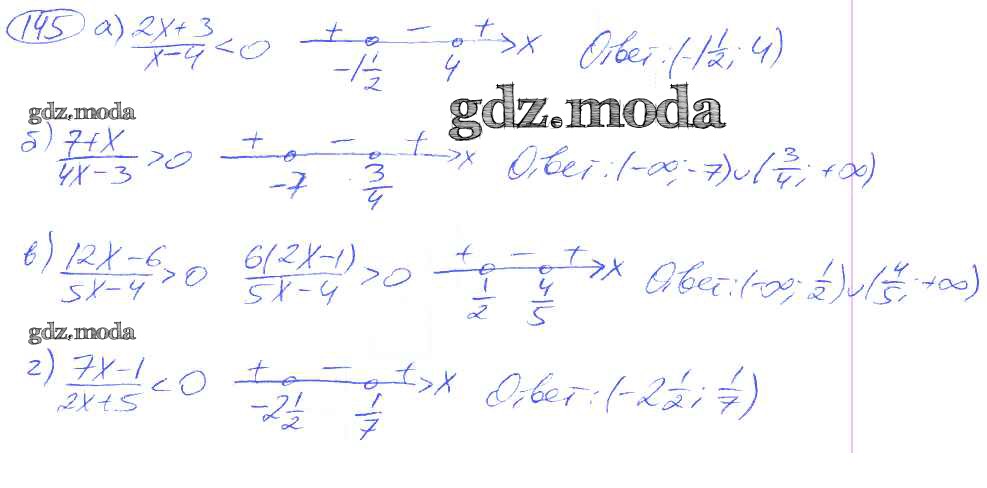 145 а) (2x+3)/(x-4) < 0 + - + x -1 1/2 4 Ответ: (-1 1/2; 4)
gdz.moda
gdz.moda
б) (7+x)/(4x-3) > 0 + - + x -7 3/4 Ответ: (-∞; -7)∪(3/4; +∞)
в) (12x-6)/(5x-4) > 0 6(2x-1)/(5x-4) > 0 + - + x 1/2 4/5 Ответ: (-∞; 1/2)∪(4/5; +∞)
gdz.moda
г) (7x-1)/(2x+5) < 0 + - + x -2 1/2 1/7 Ответ: (-2 1/2; 1/7)